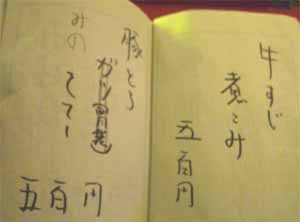 牛すじ
煮こみ
五百円
豚とろ
ガツ(胃袋)
みの
てっー
五百円